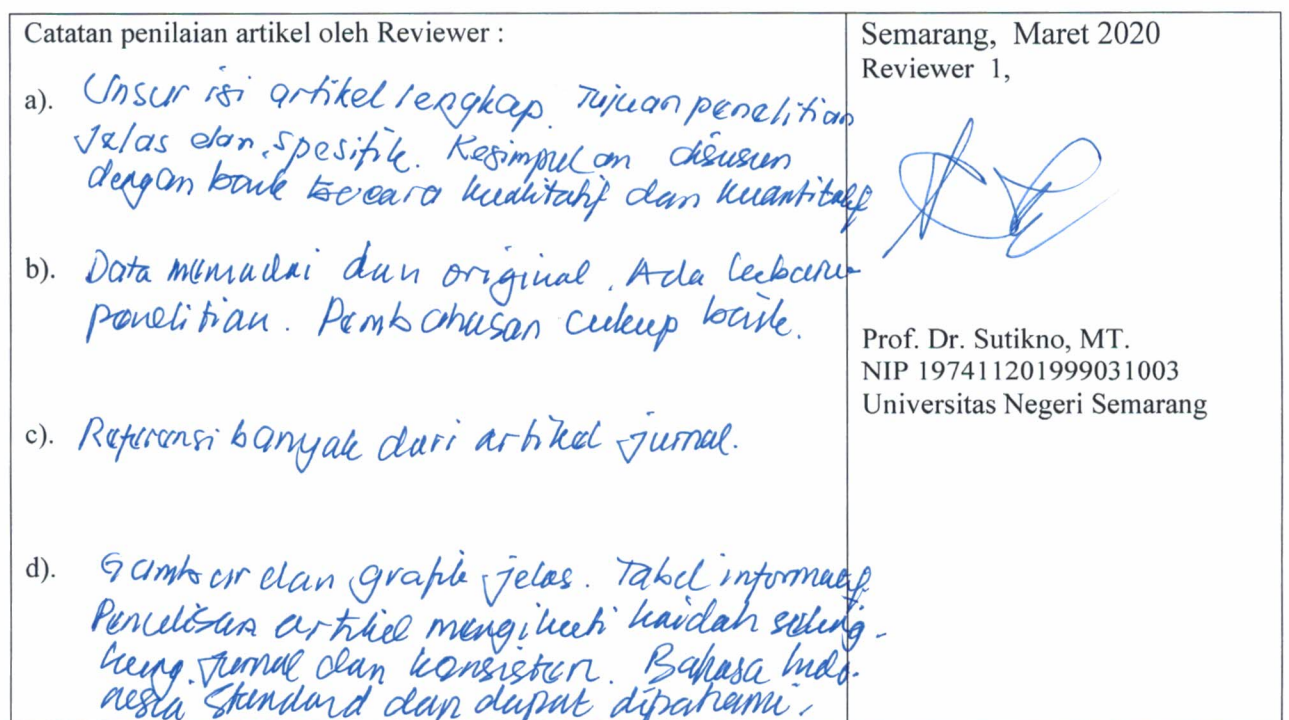 Catatan penilaian artikel oleh Reviewer :
a). Unsur isi artikel lengkap. Tujuan penelitian
Jelas dan spesifik. Kesimpulan disusun
dengan baik secara kualitatif dan kuantitatif
b). Data memadai dan original. Ada kebaruan
penelitian. Pembahasan cukup baik.
c). Referensi banyak dari artikel jurnal.
d). Gambar dan grafik jelas. Tabel informatif.
Penulisan artikel mengikuti kaidah seling-
kung jurnal dan konsisten. Bahasa Indo-
nesia standard dan dapat dipahami.
Semarang, Maret 2020
Reviewer 1,
Prof. Dr. Sutikno, MT.
NIP 197411201999031003
Universitas Negeri Semarang